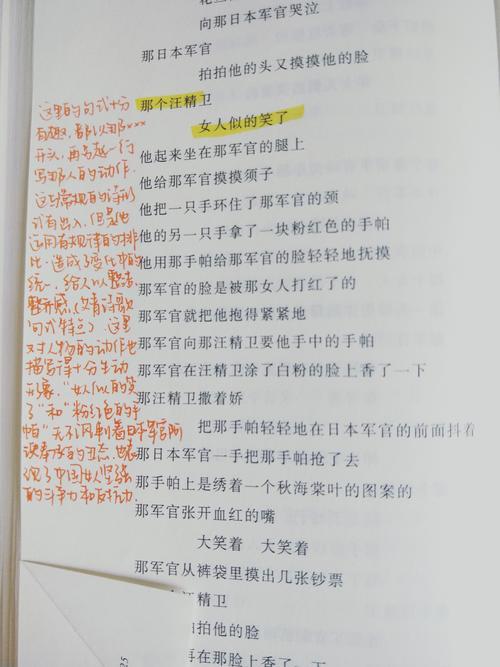 向那日本军官哭泣
那日本军官
拍拍他的头又摸摸他的脸
那个汪精卫
女人似的笑了
他起来坐在那军官的腿上
他给那军官摸摸须子
他把一只手环住了那军官的颈
他的另一只手拿了一块粉红色的手帕
他用那手帕给那军官的脸轻轻地抚摸
那军官的脸是被那女人打红了的
那军官就把他抱得紧紧地
那军官向那汪精卫要他手中的手帕
那军官在汪精卫涂了白粉的脸上香了一下
那汪精卫撒着娇
把那手帕轻轻地在日本军官的前面抖着
那日本军官一手把那手帕抢了去
那手帕上是绣着一个秋海棠叶的图案的
那军官张开血红的嘴
大笑着 大笑着
那军官从裤袋里摸出几张钞票
汪精卫
拍他的脸
再在那脸上香了一下
这里的句式十分
有趣，都以那×××
开头，再另起一行
写那人的动作。
这与常规的诗形
式有出入，但是他
运用有规律的排
比，造成了变化中的
统一，给人以整齐
整开感。
句式特点）。这里
又对人物的动作也
描写得十分生动
形象，“女人似的笑
了”和“粉红色的手
帕”无不讽刺着日本军官阿
谀奉承的丑态，也表
现了中国女人坚强
的斗争力和反抗力。